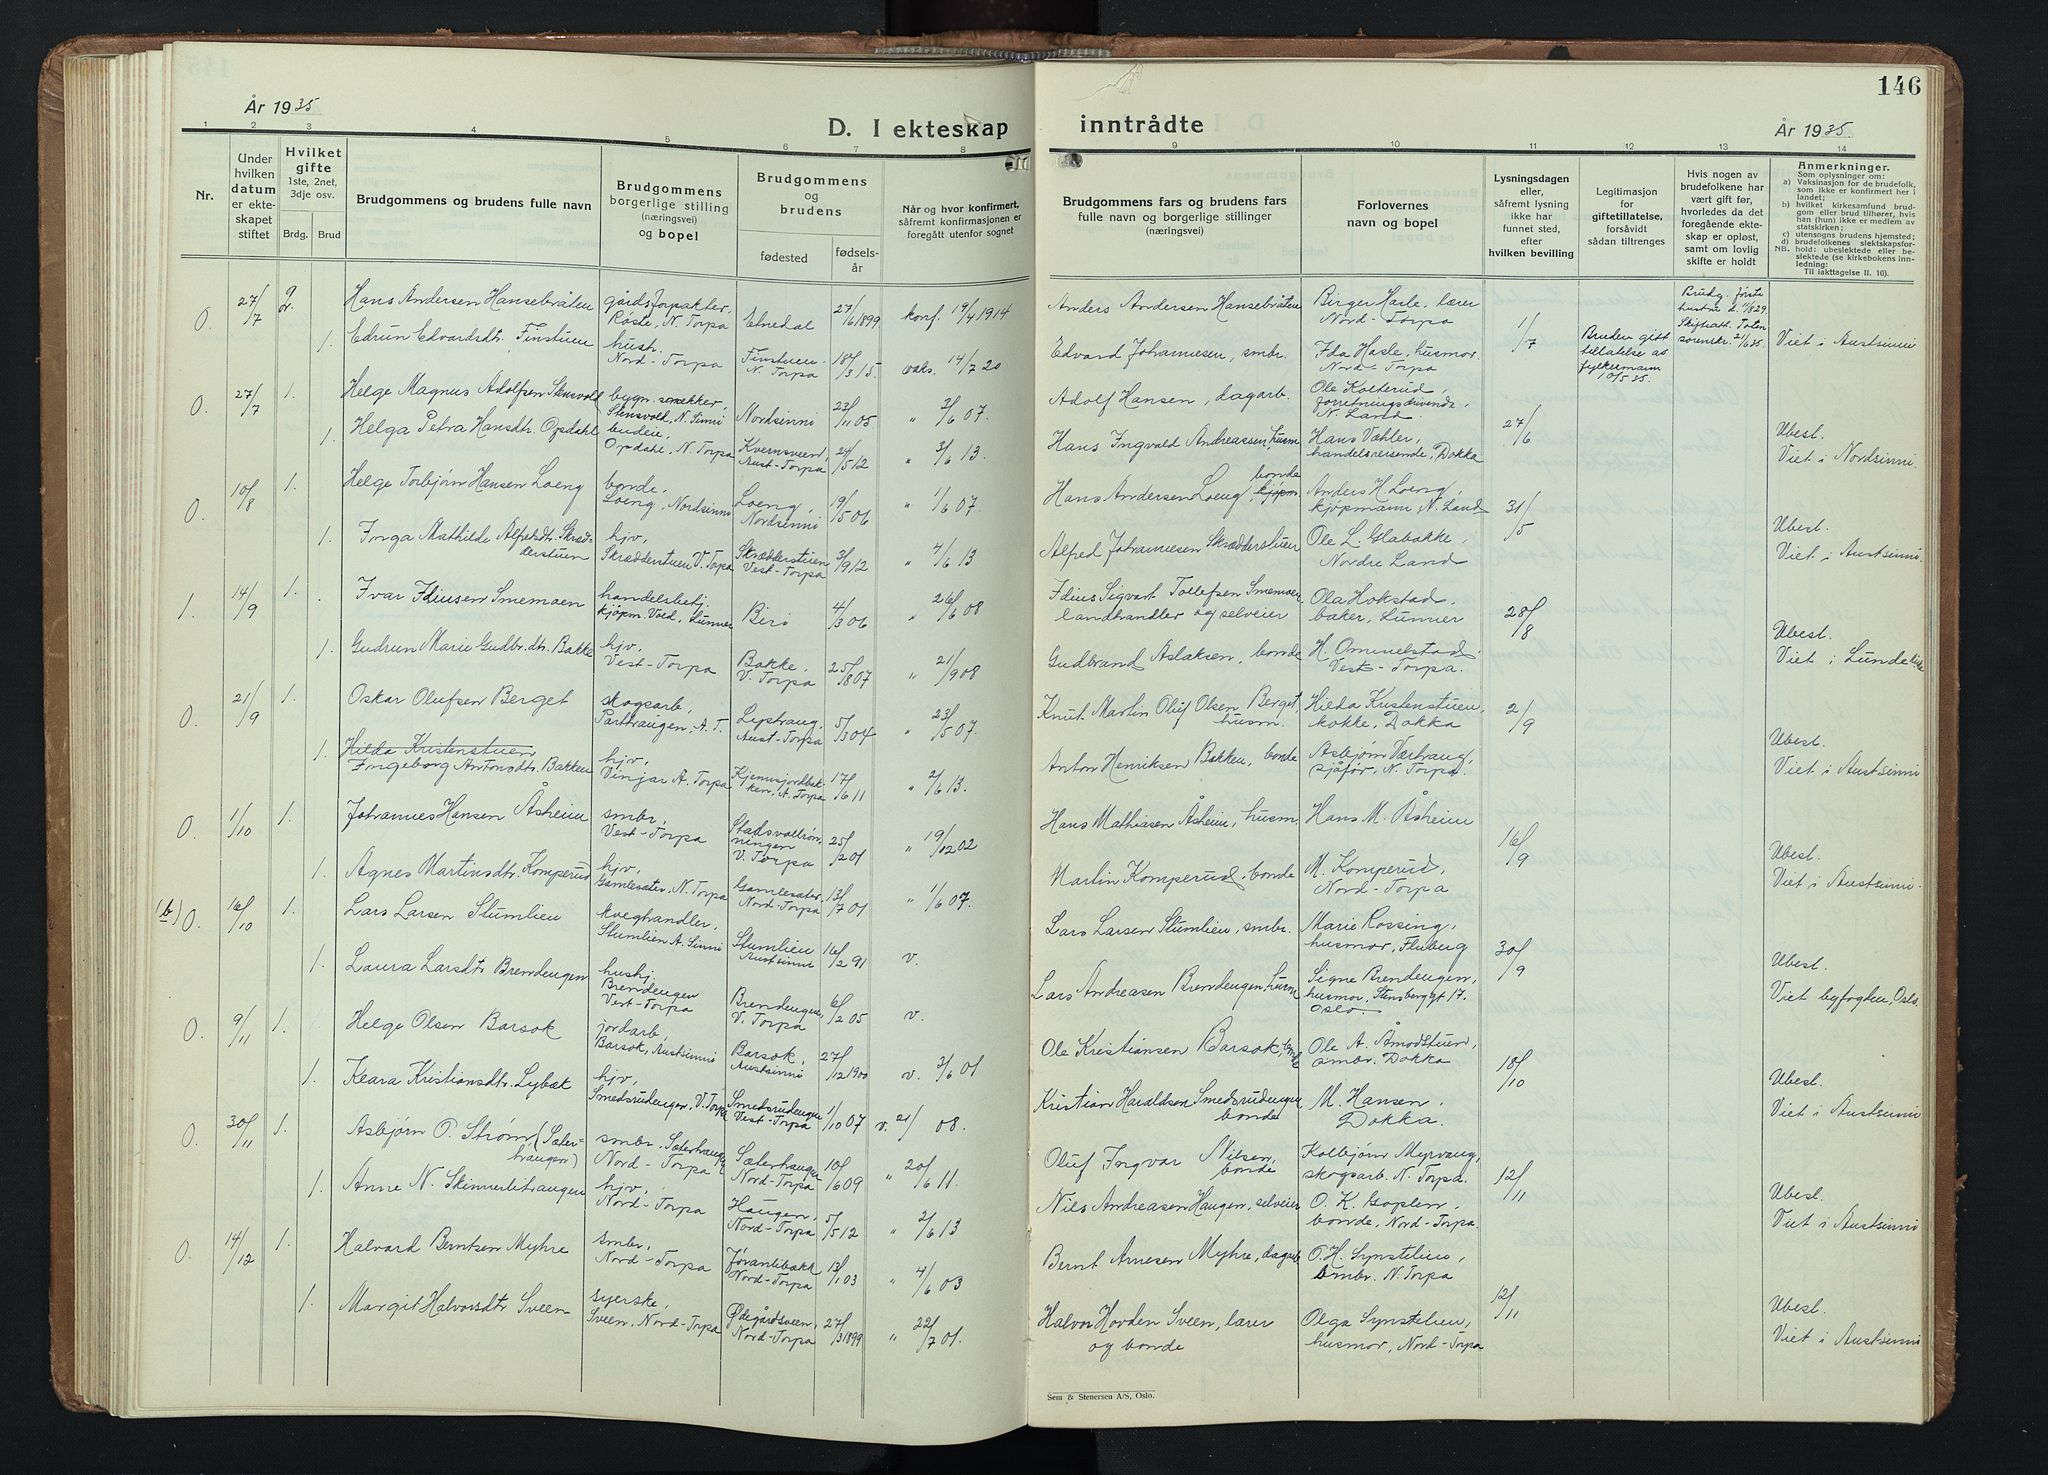 År 1935
D. I ekteskap
1 2 3 4 5 6 7 8
Nr.
Under hvilken datum er ekteskapet stiftet
Hvilket gifte
1ste, 2net, 3dje osv.
Brdg. Brud
Brudgommens og brudens fulle navn
Brudgommens borgerlige stilling (næringsvei) og bopel
Brudgommens og brudens
fødested
fødselsår
Når og hvor konfirmert, såfremt konfirmasjonen er foregått utenfor sognet
0. 27/7 Hans Andersen Hansebråten gårdsforpakter, Røste, N. Torpa Etnedal 27/6 1899 konf. 19/4 1914
1. Edrun Edvardsdtr. Finstuen hush. Nord-Torpa Finstuen N. Torpa 18/3 15. vaks. 14/7 20
0. 27/7 1. Helge Magnus Adolfsen Stensvold bygn. snekker, Stensvold, N. Sinni Nordsinni 23/11 05 " 3/6 07.
1. Helga Petra Hansdtr. Opdahl budeie, Opdahl, N. Torpa Kvernsveen, Aust-Torpa 24/5 12 " 3/6 13.
0. 10/8 1. Helge Torbjørn Hansen Loeng bonde, Loeng, Nordsinni Loeng, Nordsinni 19/5 06 " 1/6 07.
1. Inga Mathilde Alfredsdtr. Skrædderstuen hjv, Skrædderstuen V. Torpa Skrædderstuen Vest-Torpa 3/9 12 " 4/6 13
1. 14/9 1. Ivar Idiusen Smemoen handelsbetj. kjøpm. Vold, Lunner Biri 4/3 06 " 26/6 08
1. Gudrun Marie Gudbr.dtr. Bakke hjv, Vest-Torpa Bakke, V. Torpa 25/8 07 " 21/9 08
0. 21/9 1. Oskar Olufsen Berget skogsarb, A. T. Aust-Torpa 5/3 04 " 23/5 07.
1. Hilda Kristenstuen
Ingeborg Antonsdtr. Bakken hjv, Vinjar A. Torpa A. Torpa 17/6 11 " 2/6 13.
0. 1/10 1. Johannes Hansen Åsheim smbr, Vest-Torpa V. Torpa 25/2 01 " 19/12 02
1. Agnes Martinsdtr. Komperud hjv, Gamlesæter, N. Torpa Gamlesæter, Nord-Torpa 13/7 01 " 1/6 07.
1b) 0. 16/10 1. Lars Larsen Stumlien kveghandler, Stumlien A. Sinni Stumlien Austsinni 16/2 91 v.
1. Laura Larsdtr Brendengen hushj. Brendengen Vest-Torpa Brendengen, V. Torpa 6/2 05 v.
0. 9/11 1. Helge Olsen Barsok jordarb, Barsok, Austsinni Barsok, Austsinni 27/12 1900 v. 3/6 01
1. Klara Kristiansdtr. Lybæk hjv, Smedsrudengen, V. Torpa Smedsrudengen Vest-Torpa 1/10 07 v. 21/ 08.
0. 30/11 1. Asbjørn O. Strøm (Sæterhaugen) smbr, Sæterhaugen Nord-Torpa Sæterhaugen Nord-Torpa 10/6 09 " 20/6 11.
1. Anne N. Skinnerlihaugen hjv, Nord-Torpa Haugen, Nord-Torpa 5/5 12 " 2/6 13
0. 14/12 1. Halvard Berntsen Myhre smbr, Nord-Torpa Jørandlibakk Nord-Torpa 13/1 03 " 4/6 03
1. Margit Halvorsdtr Sveen syerske, Sveen, Nord-Torpa Ødegårdsveen, Nord-Torpa 27/3 1899 " 22/7 01.
146
inntrådte
År 1935.
9 10 11 12 13 14
Brudgommens fars og brudens fars fulle navn og borgerlige stillinger (næringsvei)
Forlovernes navn og bopel
Lysningsdagen eller, såfremt lysning ikke har funnet sted, efter hvilken bevilling
Legitimasjon for giftetillatelse, forsåvidt sådan tiltrenges
Hvis nogen av brudefolkene har vært gift før, hvorledes da det foregående ekteskap er opløst, samt om lovlig skifte er holdt
Anmerkninger.
Som oplysninger om:
a) Vaksinasjon for de brudefolk, som ikke er konfirmert her i landet;
b) hvilket kirkesamfund brudgom eller brud tilhører, hvis han (hun) ikke er medlem av statskirken;
c) utensogns brudens hjemsted;
d) brudefolkenes slektskapsforhold: ubeslektede eller beslektede (se kirkebokens innledning:
NB. Til iakttagelse II. 10).
Anders Andersen Hansebråten Birger Hasle, lærer Nord-Torpa 1/7 Bruden gift tillatelse av fylkesmann 10/5 35. Brudg. første hustru d. 11/8 29. Skifteatt. Toten sorenskr. 21/6 35. Viet i Austsinni
Edvard Johannesen, smbr. Ida Hasle, husmor Nord-Torpa
Adolf Hansen, dagarb. Ole Kolterud, forretningsdrivende, N. Land 27/6 Ubesl.
Hans Ingvald Andreassen, husm Hans Væhler, handelsreisende, Dokka Viet i Nordsinni.
Hans Andersen Loeng, bonde kjøpm. Anders H. Loeng, kjøpmann, N. Land 31/5 Ubesl.
Alfred Johannesen Skrædderstuen Ole L. Glabakke, Nordre Land Viet i Austsinni.
Idius Sigvart Tollefsen Smemoen landhandler og selveier Ola Hokstad, baker, Lunner 28/8 Ubesl.
Gudbrand Aslaksen, bonde H. Ommelstad Vest-Torpa. Viet i Lunde kirke
Knut Martin Oluf Olsen Berget, husm. Hilda Kristenstuen, kokke, Dokka 2/9 Ubesl.
Anton Henriksen Bakken, bonde Asbjørn Værhaug, sjåfør, N. Torpa. Viet i Austsinni
Hans Mathiasen Åsheim, husm. Hans M. Åsheim 16/9 Ubesl.
Martin Komperud, bonde M. Komperud, Nord-Torpa Viet i Austsinni.
Lars Larsen Stumlien, smbr. Marie Rossing, husmor, Fluberg 30/9 Ubesl.
Lars Andreasen Brendengen, husm Signe Brendengen, husmor, Stensberggt 17. Oslo. Viet byfogden, Oslo
Ole Kristiansen Barsok, bonde Ole A. Åmodtstuen, smbr. Dokka 18/10 Ubesl.
Kristian Haraldsen Smedsrudengen bonde M. Hansen, Dokka. Viet i Austsinni
Oluf Ingvar Nilsen, bonde Kolbjørn Myrvang, skogsarb. N. Torpa. 12/11 Ubesl.
Nils Andreasen Haugen, selveier O. K. Koplen, bonde, Nord-Torpa Viet i Austsinni
Bernt Arnesen Myhre, dagarb O. H. Synstelien, smbr. N. Torpa 12/11 Ubesl.
Halvor Hovden Sveen, lærer og bonde Olga Synstelien, husmor, Nord-Torpa Viet i Austsinni
Sem & Stenersen A/S, Oslo.